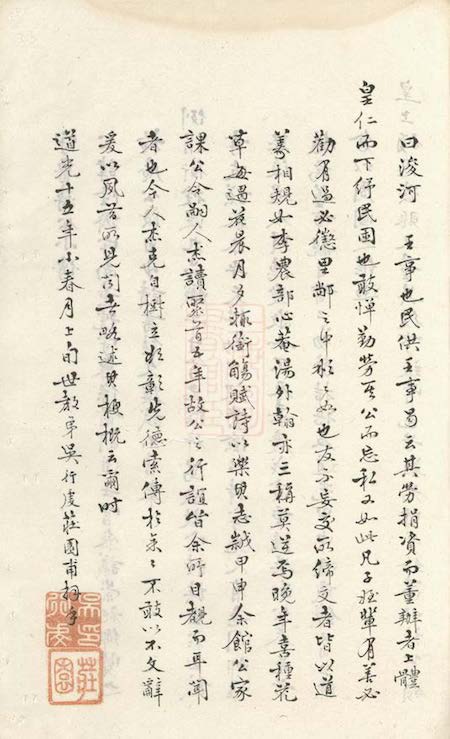 曰浚河 王事也民供王事曷云其勞捐資而董辦者上體
皇仁而下紓民困也敢憚勤勞至公而忘私又如此凡子姪輩有美必
勸有過必懲里鄰之中彬彬如也友不妄交所締交者皆以道
義相規如李農部心菴湯外翰亦三稱莫逆焉晚年喜種花
草每過花晨月夕輒銜觴賦詩以樂其志歲甲申余館公家
課公令嗣人杰讀聚首五年故公之行誼皆余所目覩而耳聞
者也今人杰克自樹立欲彰先德索傳於余余不敢以不文辭
爰以夙昔所見聞者略述其梗概云爾時
道光十五年小春月上旬世教弟吳行虔莊園甫拜手
吳印行虔
莊園